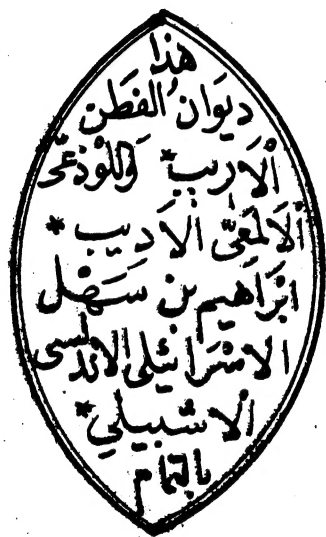 هذا
ديوَان الفَطن
الْاَريب * وَاللوذعى
الْالمعىّ الْاَديب *
ابْرَاهيم بن سَهْل
الاسْرَائيلى الاندلسى
الاشبيلي *
بالتمام